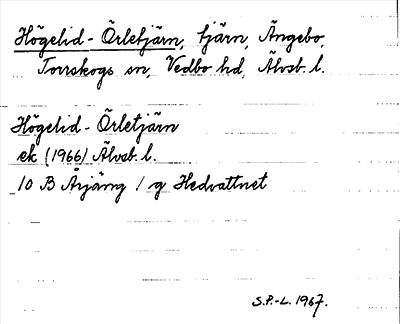 Högelid-Örletjärn, tjärn, Ängebo,
Torrskogs sn, Vedbo hd, Älvsb. l.
Högelid-Örletjärn
ek (1966) Älvsb. l.
10 B Årjäng 1 g Hedvattnet
S.P.-L. 1967.